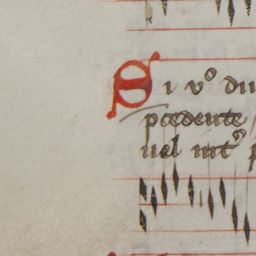 Si vº du
pcedente
uel int᷒ p